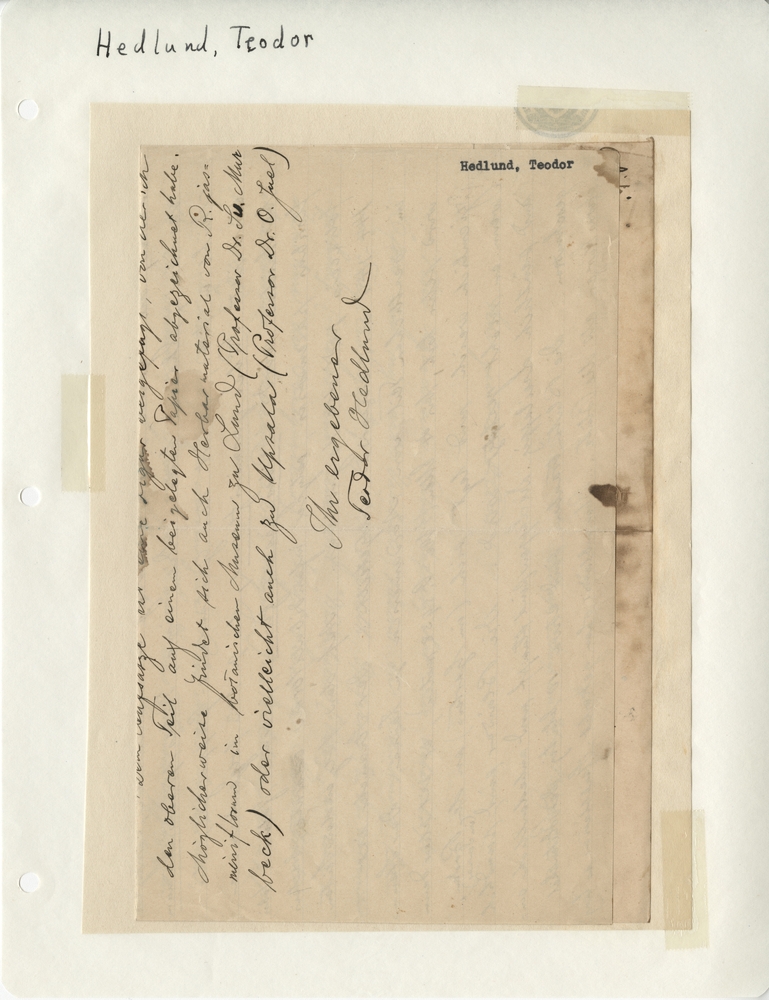 Hedlund, Teodor
Hedlund, Teodor
Dem Aufsatze ist eine Figur beigefügt, von der ich
den oberen Teil auf einem beigelegten Papier abgezeichnet habe.
Möglicherweise findet sich auch Herbarmaterial von R. jas-
miniflorum im botanischen Museum zu Lund (Professor Dr. Sv. Mur
beck) oder vielleicht auch zu Upsala (Professor Dr. O. Juel)
Ihr ergebener
Teodor Hedlund